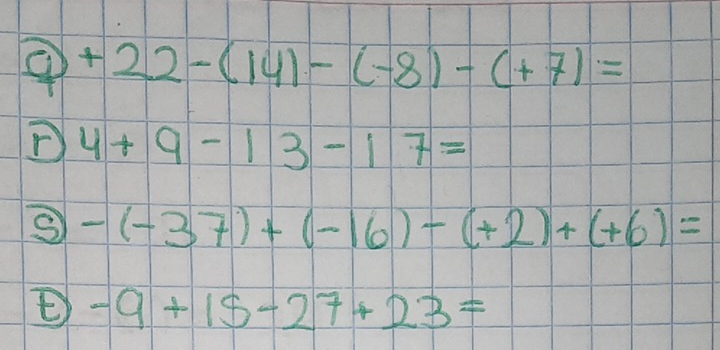 q) +22-(14)-(-8)-(+7)=
r) 4+9-13-17=
s) -(-37)+(-16)-(+2)+(+6)=
t) -9+15-27+23=